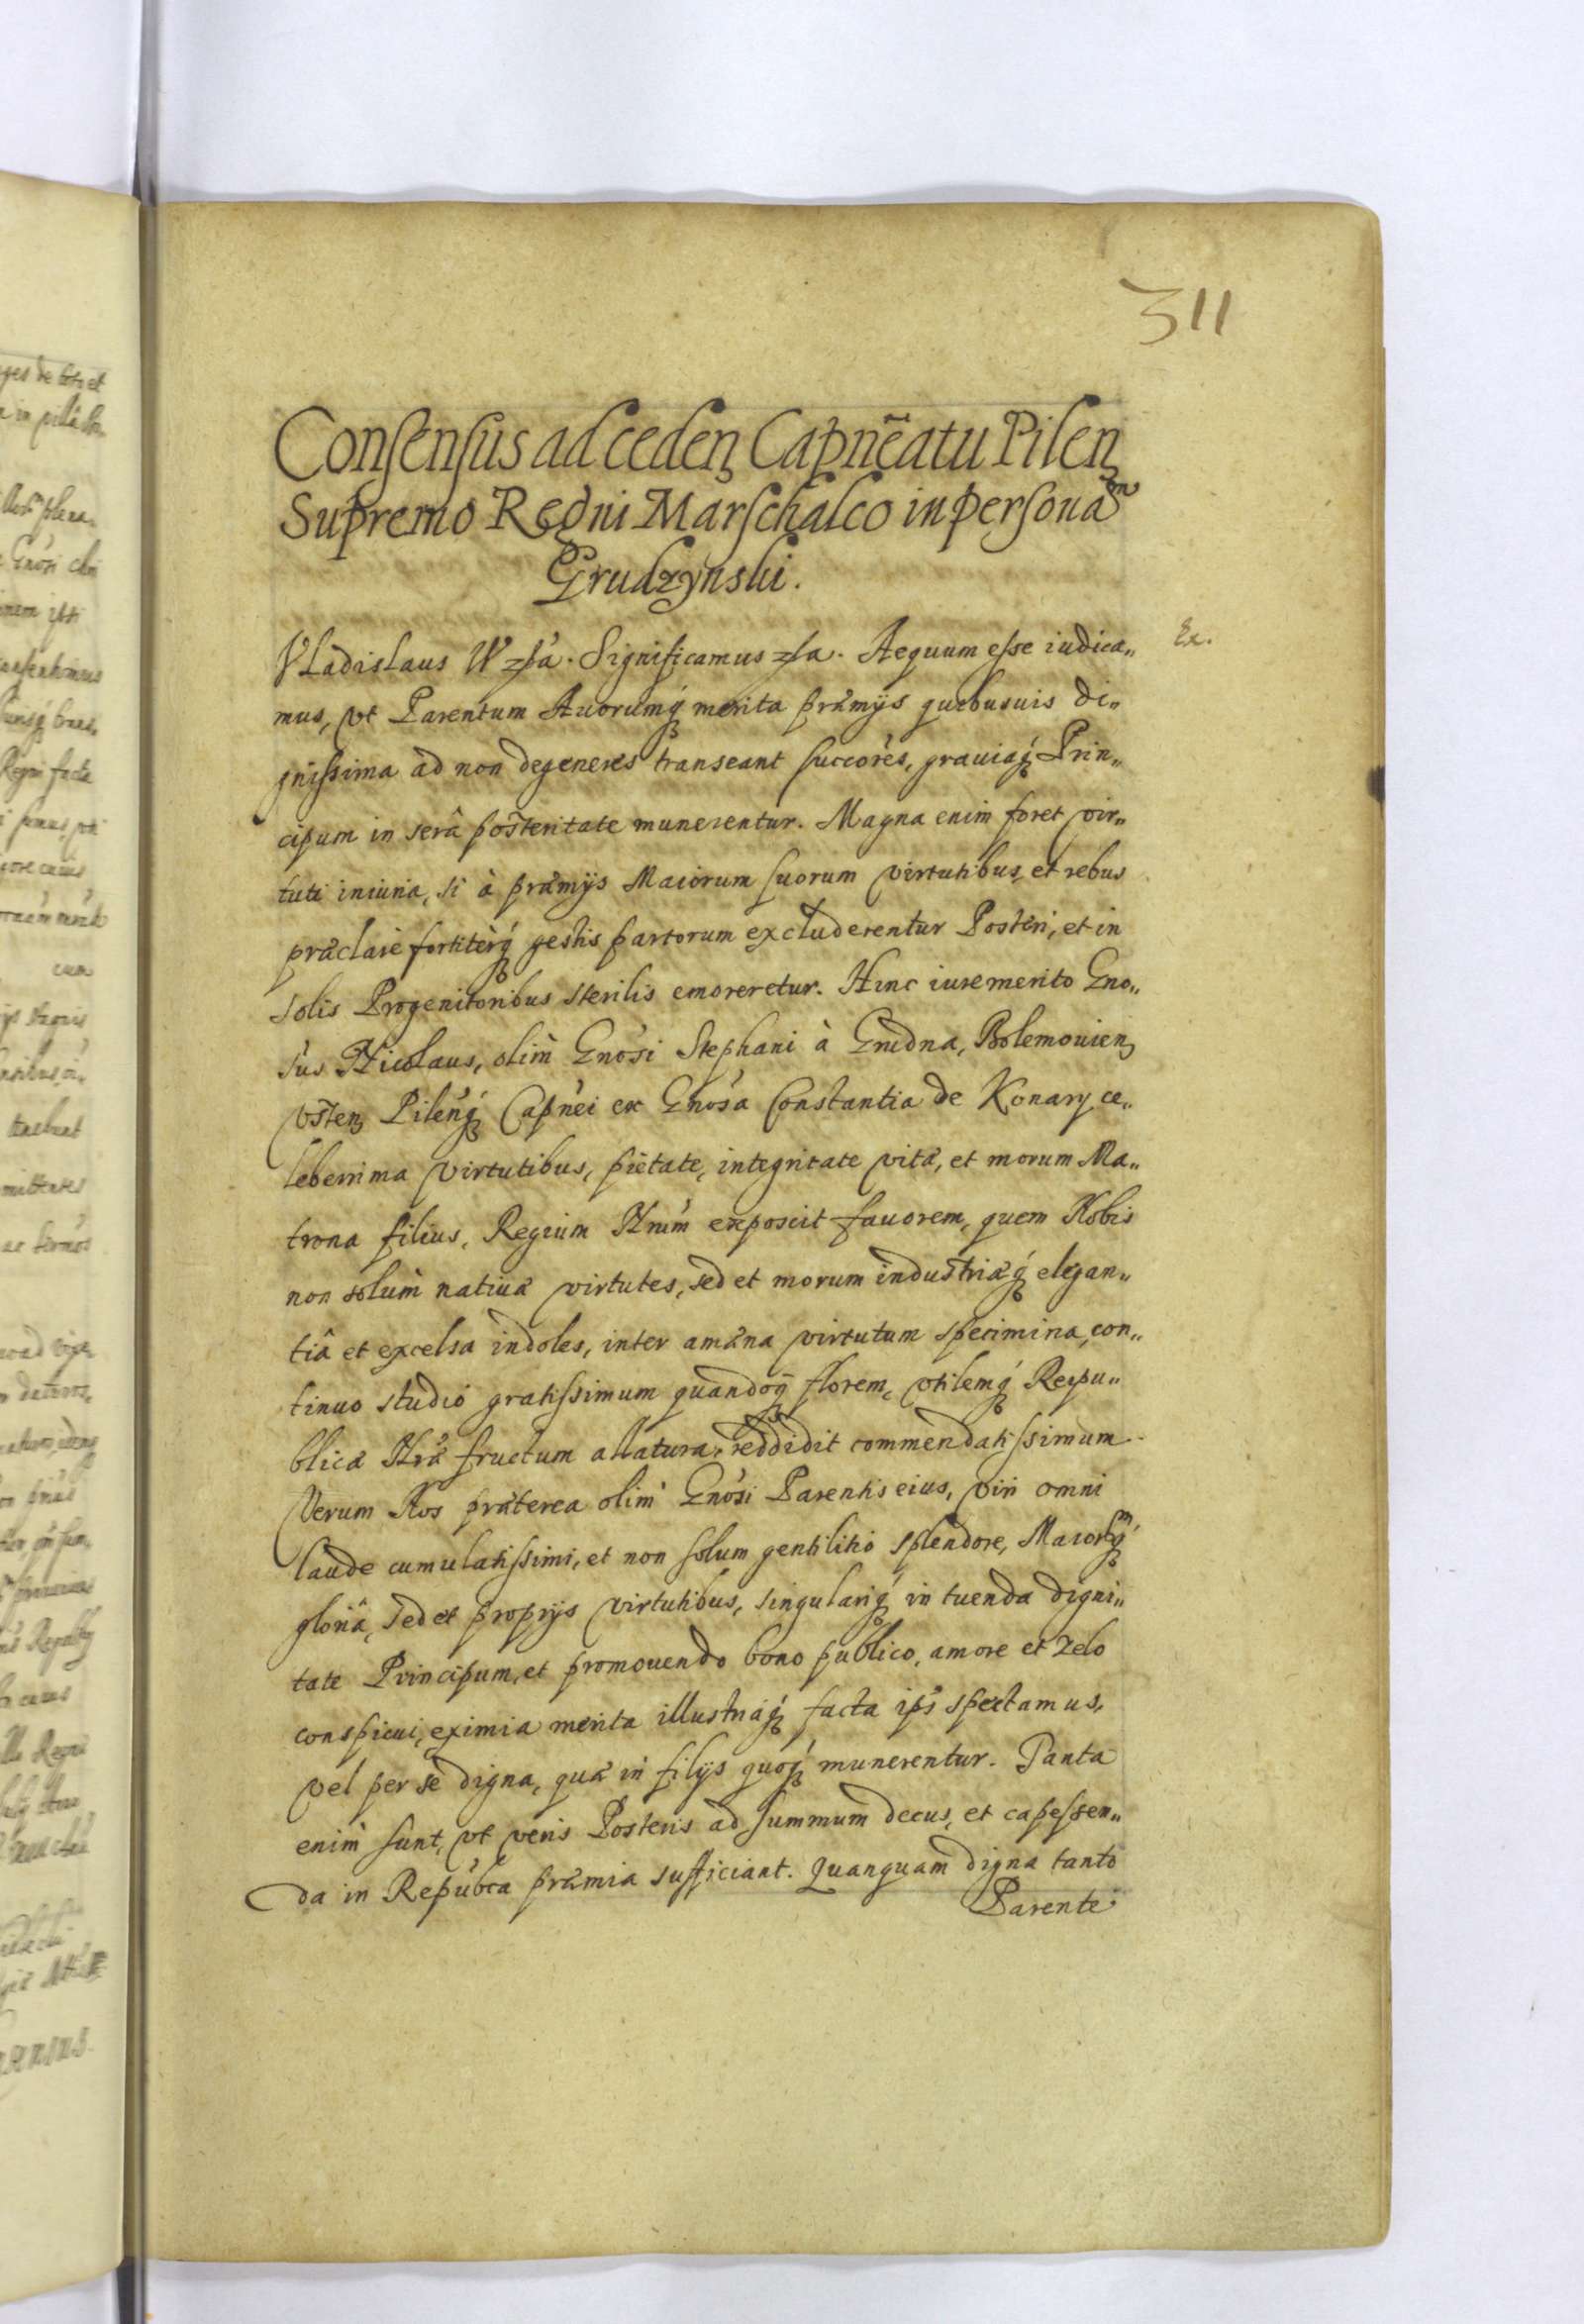 311
Consensus ad ceden Capneatu Pilen
Supremo Regni Marschalco in personam
Grudzynski.
Vladislaus IV &a. Significamus &a. Aequum esse iudica„
Ex.
mus, vt Parentum Auorumq́ merita præmijs quibusuis di„
gnissima ad non degeneres transeant succores, grauiaq́ Prin„
cipum in serâ posteritate munerentur. Magna enim foret vir„
tuti iniuria, si à præmijs Maiorum suorum virtutibus, et rebus
præclare fortiterq́ gestis partorum excluderentur Posteri, et in
solis Progenitoribus sterilis emoreretur. Hinc iure merito Gno„
sus Nicolaus, olim Gnosi Stephani à Grudna, Bolemouien
Vsten Pilenq́ Capnei ex Gnosa Constantia de Konary ce„
leberrima virtutibus, pietate, integritate vitæ, et morum Ma„
trona filius, Regium Nrum exposcit fauorem, quem Nobis
non solum natiuæ virtutes, sed et morum industriæq́ elegan„
tiâ et excelsa indoles, inter amæna virtutum specimina, con„
tinuo studio gratissimum quandoq́ florem, vtilemq́ Reipu„
blicæ Nræ fructum allatura, reddidit commendatissimum.
Verum Nos præterea olim Gnosi Parentis eius, viri omni
laude cumulatissimi, et non solum gentilitio splendore, Maiorumq́
gloriâ, sed et proprijs virtutibus, singulariq́ in tuenda digni„
tate Principum, et promouendo bono publico, amore et zelo
conspicui, eximia merita illustriaq́ facta ips spectamus,
vel per se digna, quæ in filijs quoq́ munerentur. Tanta
enim sunt, vt veris Posteris ad summum decus, et capessen„
da in Repubca præmia sufficiant. Quanquam digna tanto
Parente